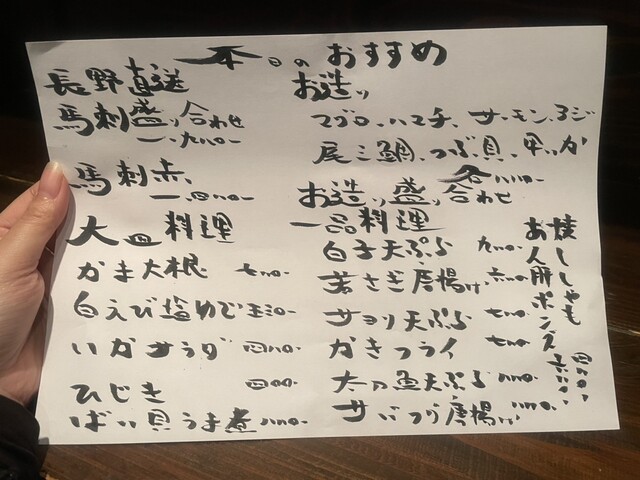 本日のおすすめ
長野直送
馬刺盛り合わせ
一、九八〇-
馬刺赤、
一、四八〇-
大皿料理
かま大根 七八〇-
白えび塩ゆで 五三〇-
いかサラダ 四八〇-
ひじき 四〇〇-
ばい貝うま煮 八八〇-
お造り
マグロ、ハマチ、サーモン、アジ
尾三鯛、つぶ貝、甲いか
各八八〇-
お造り盛り合わせ
一品料理
白子天ぷら 九八〇-
若さぎ唐揚げ、六八〇-
サヨリ天ぷら 七八〇-
かきフライ 七八〇-
太刀魚天ぷら 八八〇-
サバつり唐揚げ、八八〇-
焼ししゃも 四八〇、
あん肝ポンズ 六八〇、